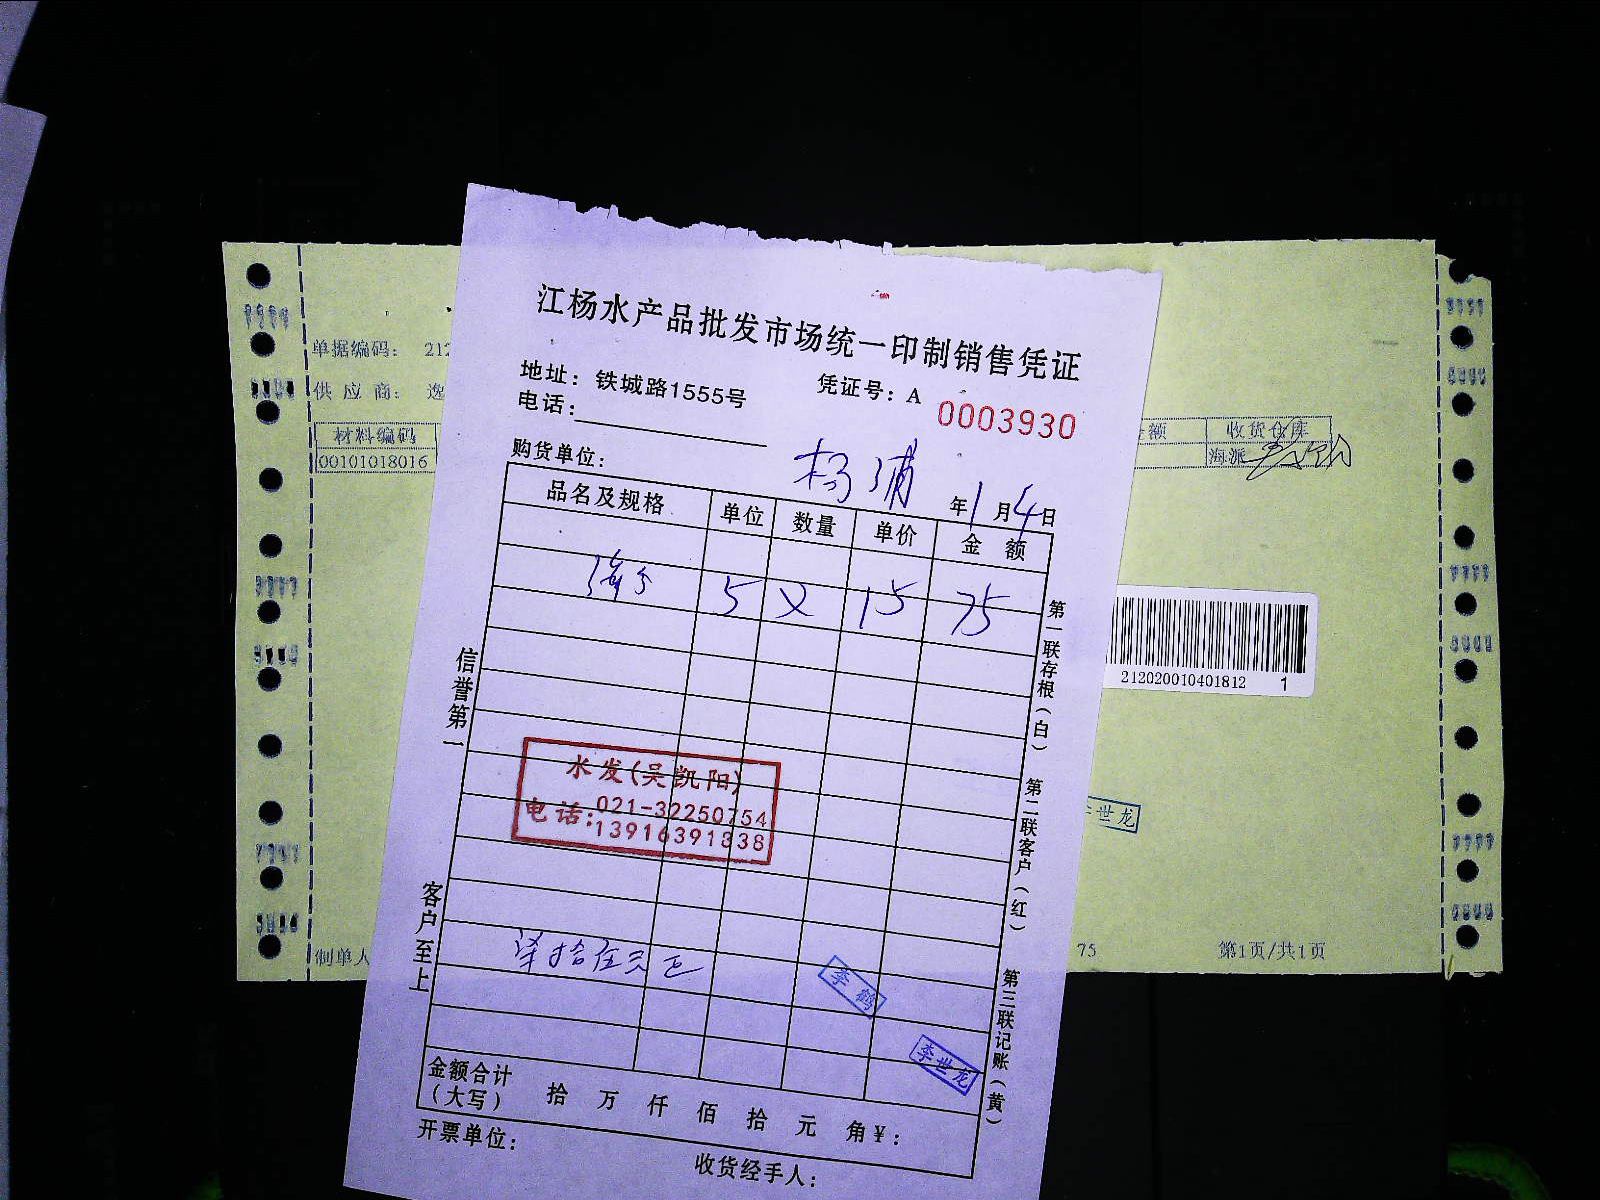 江杨水产品批发市场统一印制销售凭证
地址：铁城路1555号
凭证号：A 0003930
电话：
购货单位：
杨浦
年1月4日
品名及规格 单位 数量 单价 金 额
5 15 75
信誉第一
客户至上
第一联存根（白） 第二联客户（红） 第三联记账（黄）
水发(吴凯阳)
电话:021-32250754
13916391338
柒拾伍元正
李鹤
李世龙
金额合计
（大写） 拾 万 仟 佰 拾 元 角¥：
开票单位：
收货经手人：
单据编码： 212
供 应 商： 逸
材料编码
00101018016
金额 收货仓库
海派
212020010401812 1
李世龙
制单人
75 第1页/共1页